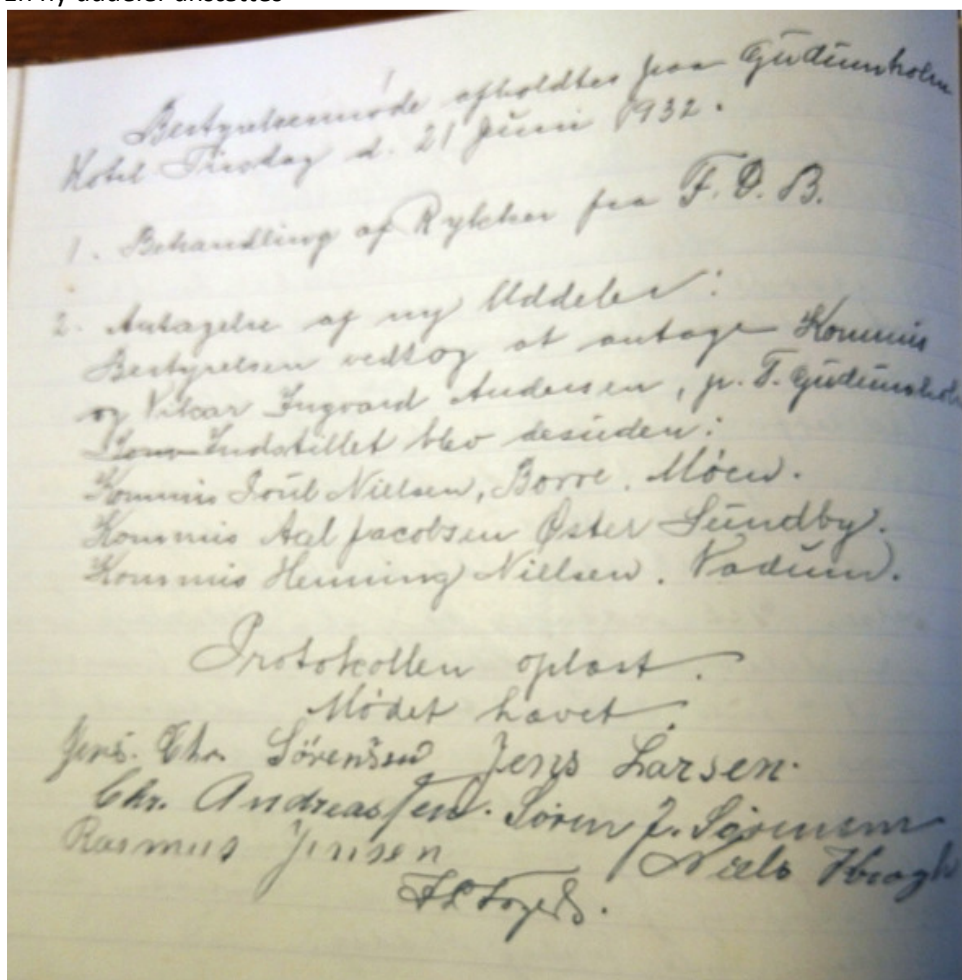 En ny uddeler ansættes
Bestyrelsesmøde afholdtes paa Gudumholm
Hotel Tirsdag d. 21 Juni 1932.
1. Behandling af Rykker fra F.D.B.
2. Antagelse af ny Uddeler:
Bestyrelsen vedtog at antage Kommis
og Vikar Ingvard Andersen, p. T. Gudumholm
Som Indstillet blev desuden:
Kommis Poul Nielsen, Borre. Møen.
Kommis Axel Jacobsen Øster Sundby.
Kommis Henning Nielsen. Vadum.
Protokollen oplæst.
Mødet hævet.
Jens. Chr. Sørensen Jens Larsen.
Chr. Andreassen. Søren J. Sørensen
Rasmus Jensen Niels Krogh